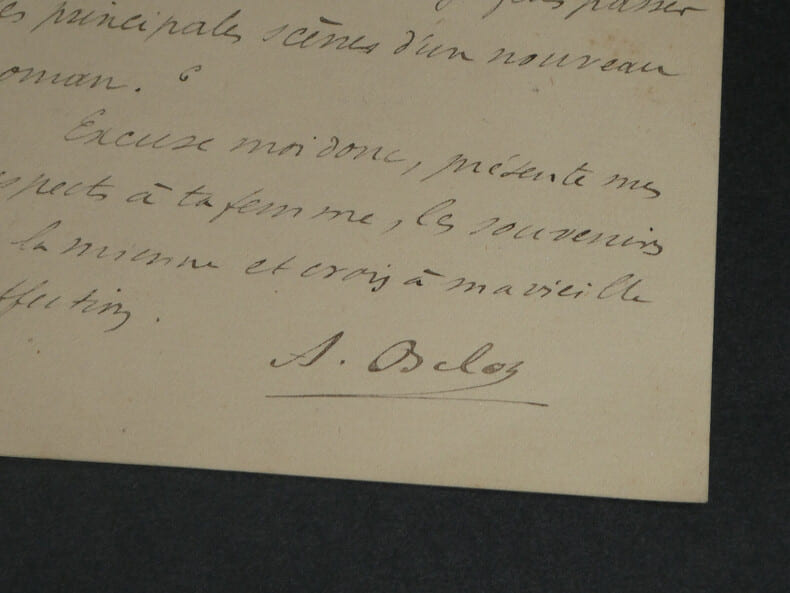 passer
es principales scènes d'un nouveau
oman.
Excuse moi donc, présente mes
spects à ta femme, les souvenirs
la mienne et crois à ma vieille
ffection.
A.